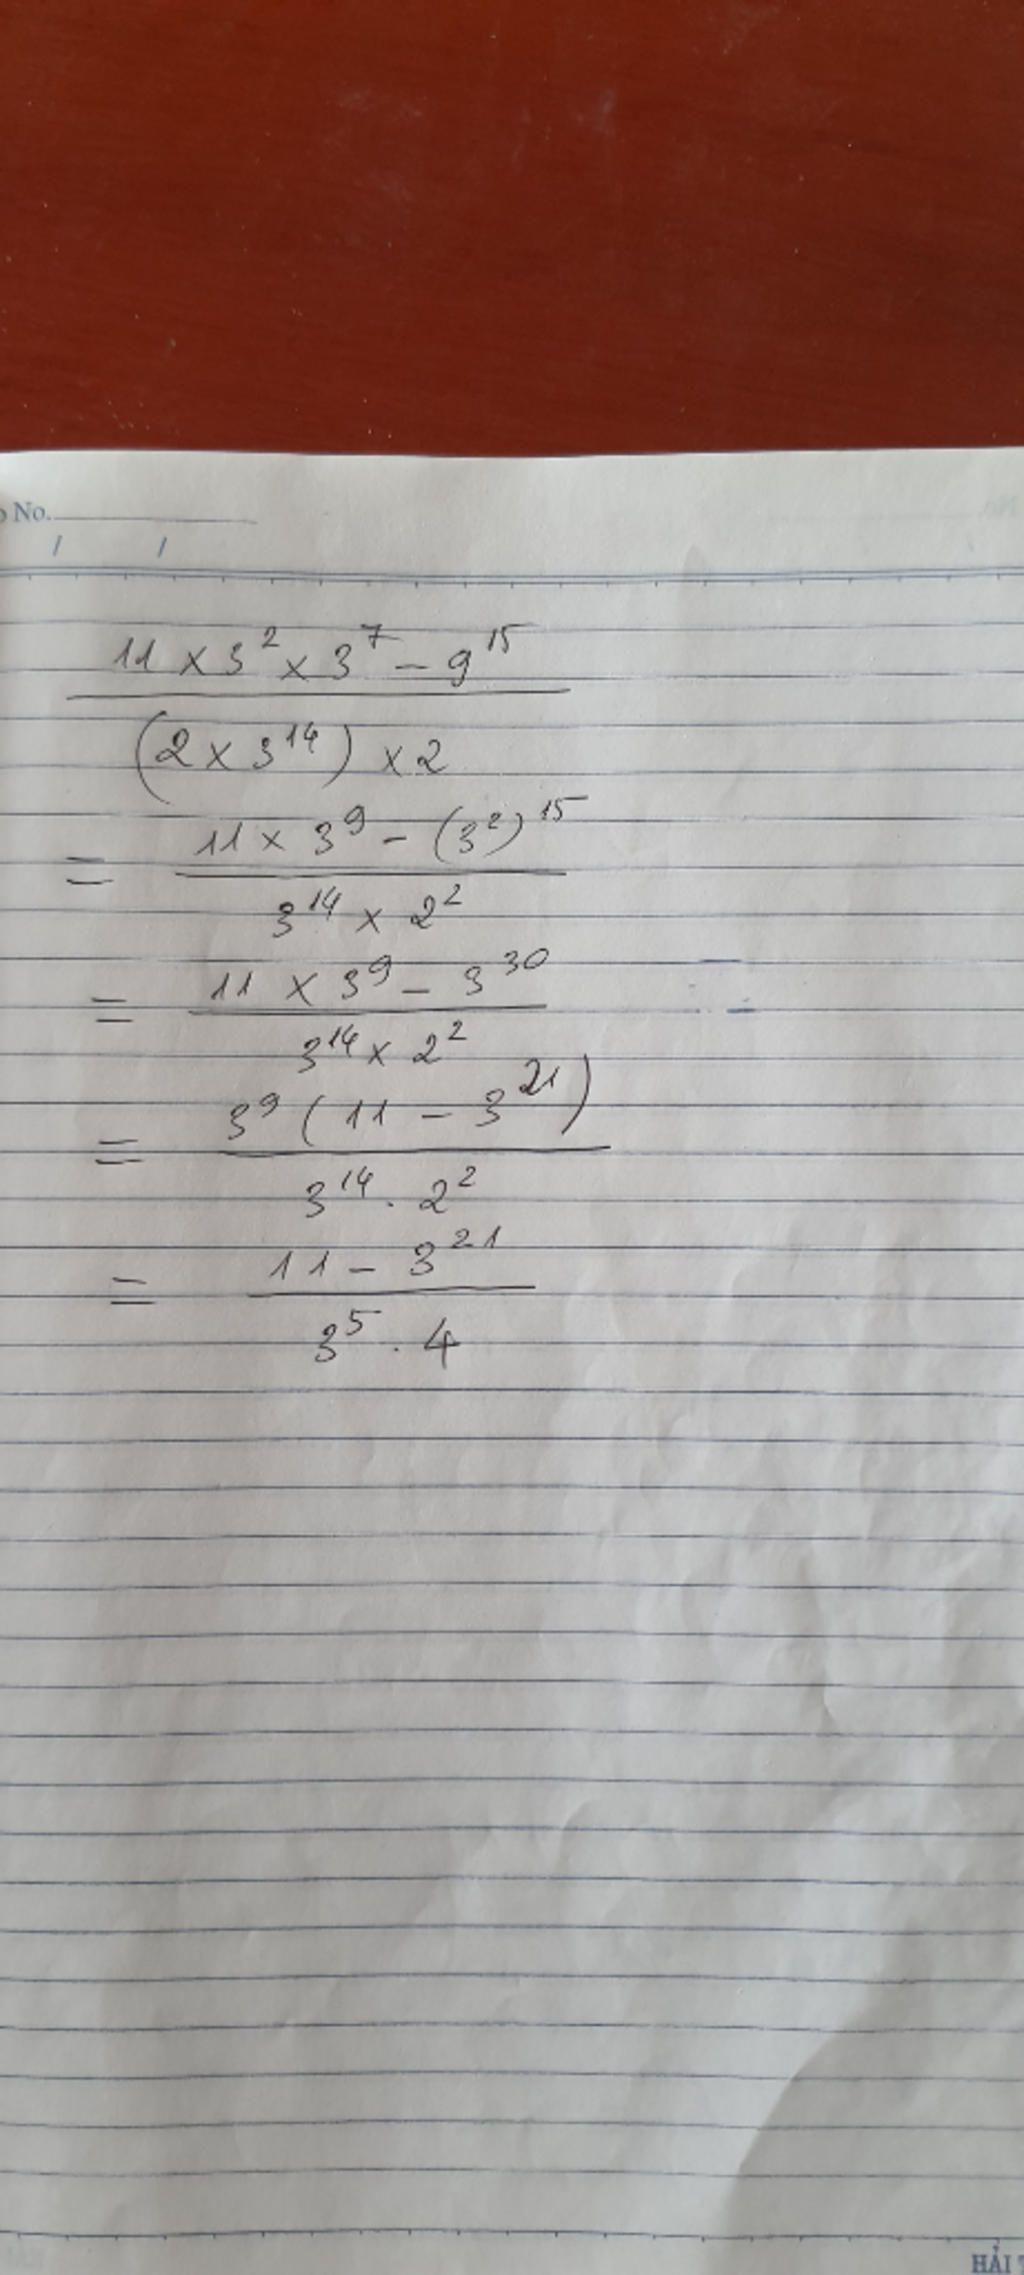 No.
/ /
11 × 3² × 3⁷ − 9¹⁵
(2 × 3¹⁴) × 2
= 11 × 3⁹ − (3²)¹⁵
3¹⁴ × 2²
= 11 × 3⁹ − 3³⁰
3¹⁴ × 2²
= 3⁹ (11 − 3²¹)
3¹⁴ . 2²
= 11 − 3²¹
3⁵ . 4
HẢI